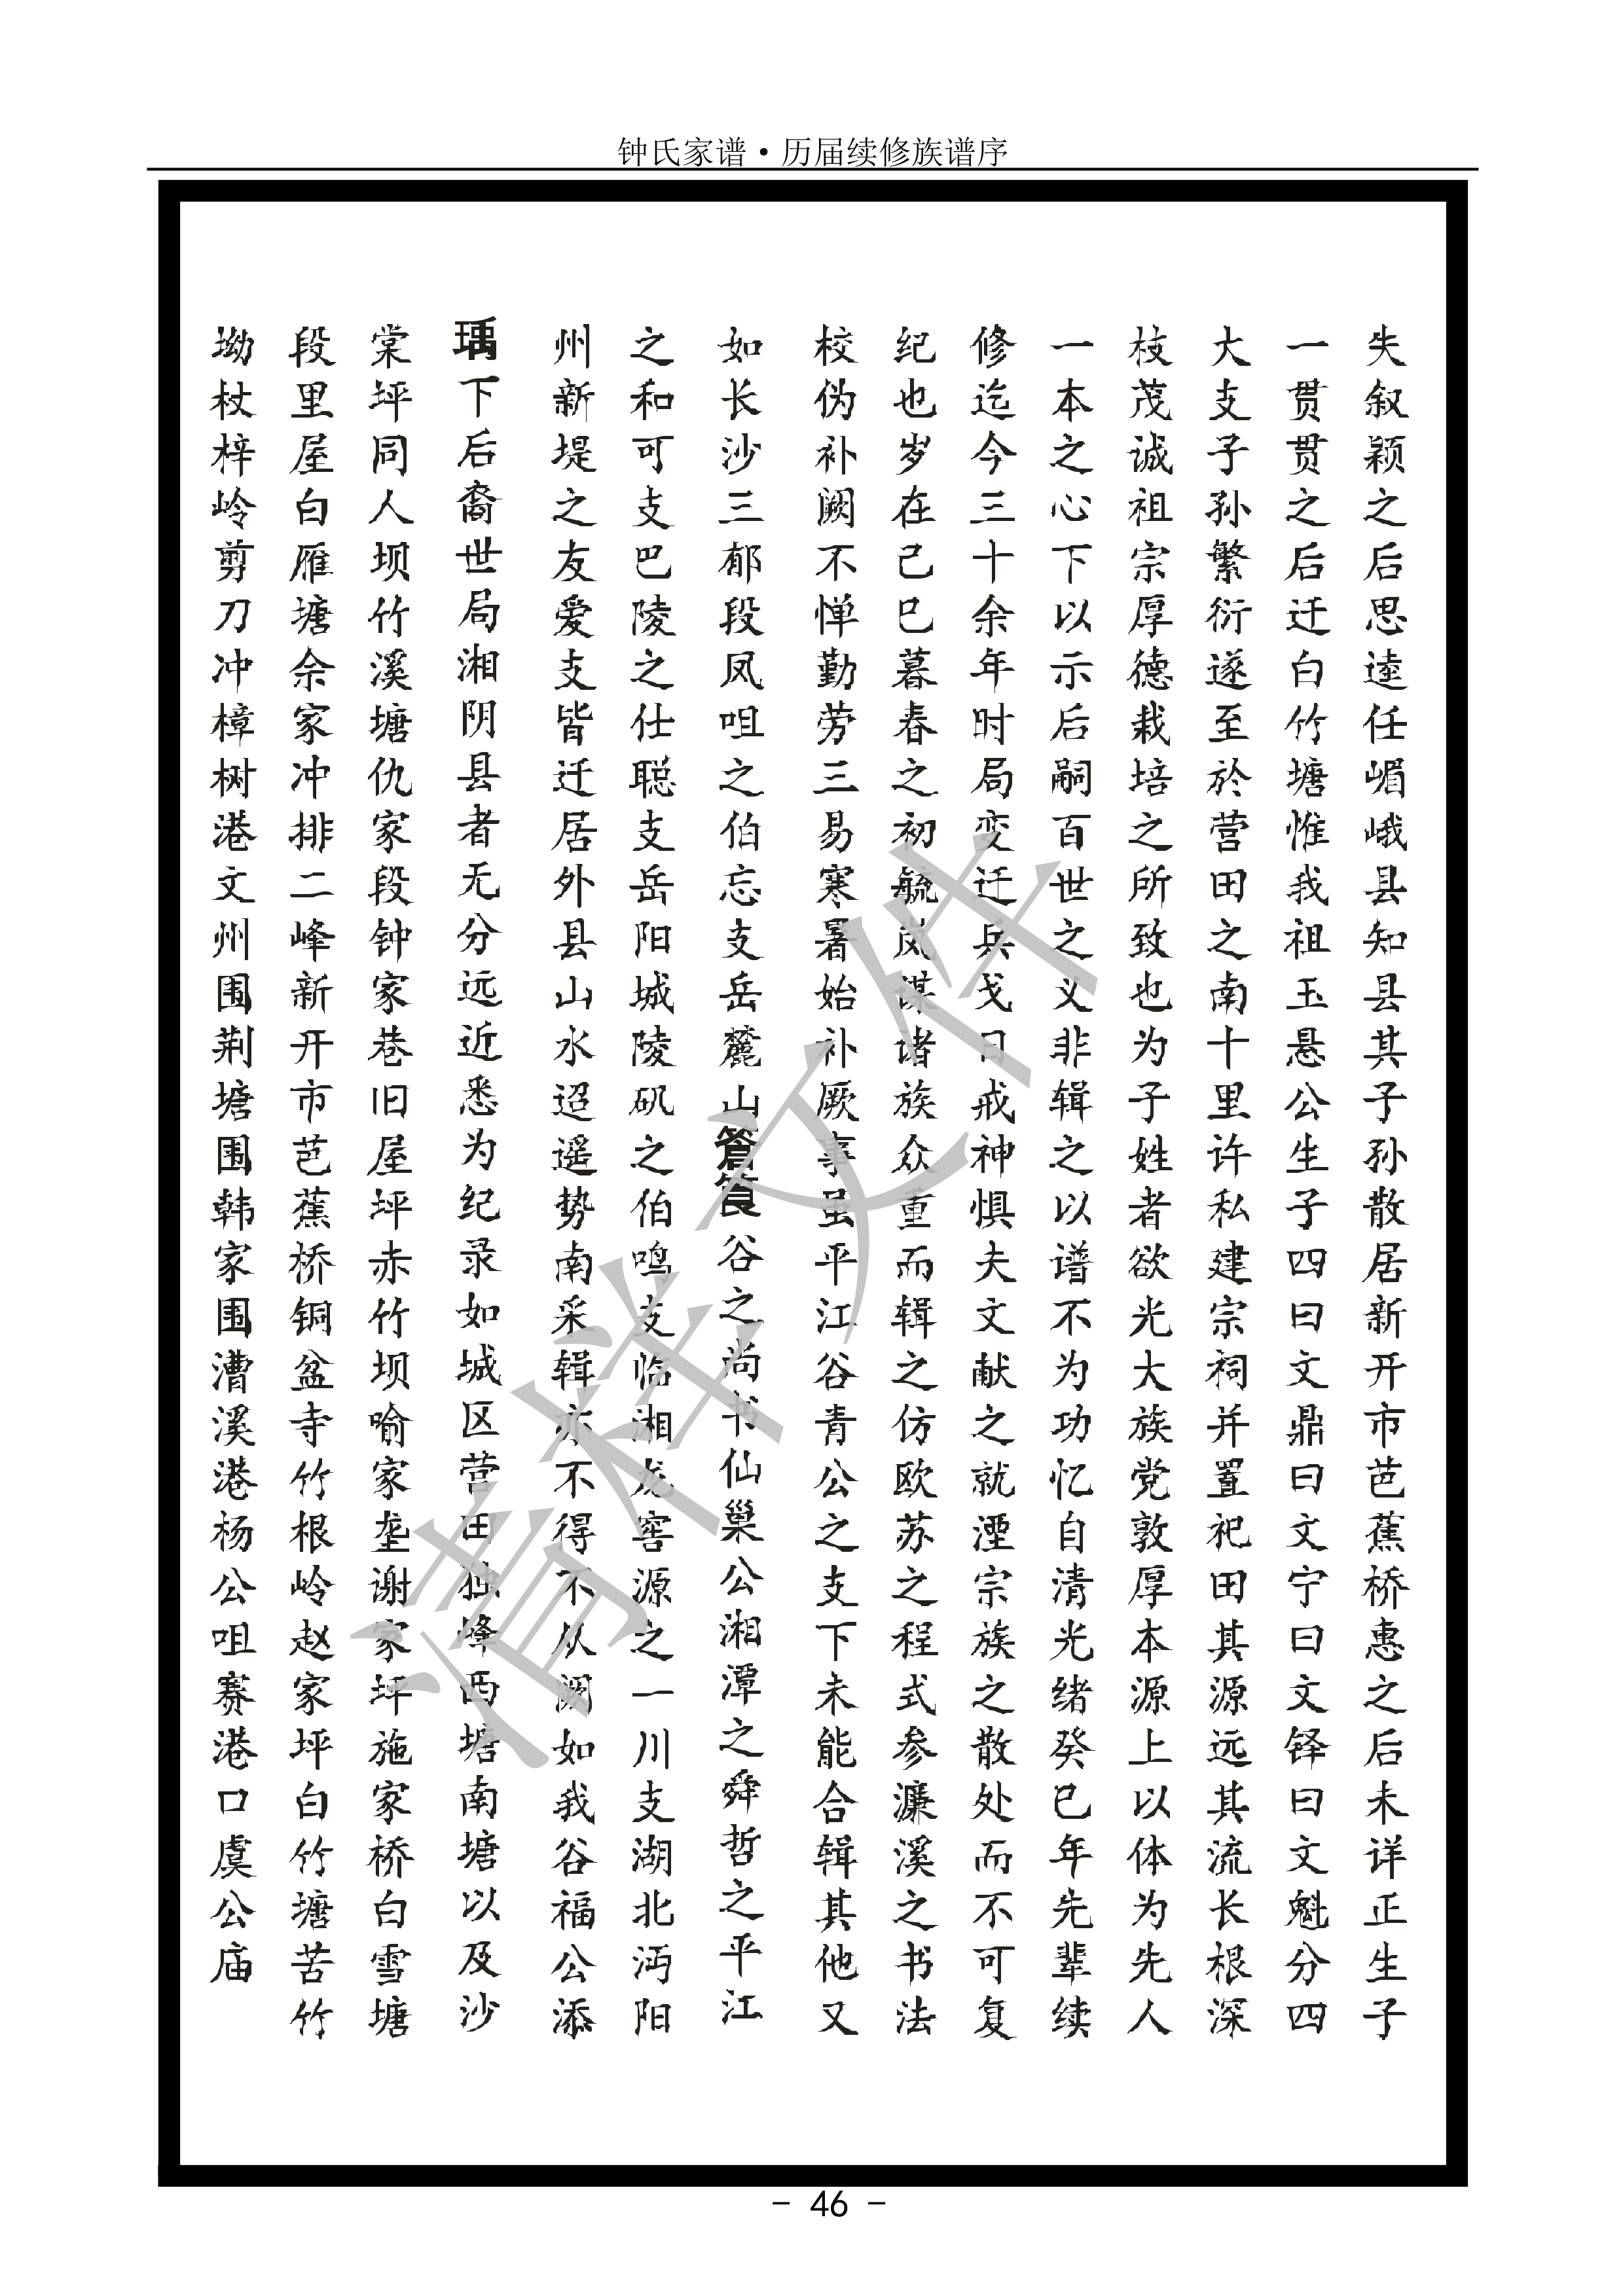 钟氏家谱·历届续修族谱序
失叙颖之后思逵任嵋峨县知县其子孙散居新开市芭蕉桥惠之后未详正生子
一贯贯之后迁白竹塘惟我祖玉悬公生子四曰文鼎曰文宁曰文铎曰文魁分四
大支子孙繁衍遂至於营田之南十里许私建宗祠并置祀田其源远其流长根深
枝茂诚祖宗厚德栽培之所致也为子姓者欲光大族党敦厚本源上以体为先人
一本之心下以示后嗣百世之义非辑之以谱不为功忆自清光绪癸巳年先辈续
修迄今三十余年时局变迁兵戈日戒神惧夫文献之就湮宗族之散处而不可复
纪也岁在己巳暮春之初毓岚谋诸族众重而辑之仿欧苏之程式参濂溪之书法
校伪补阙不惮勤劳三易寒署始补厥事虽平江谷青公之支下未能合辑其他又
如长沙三郁段凤咀之伯忘支岳麓山箬筤谷之尚书仙巢公湘潭之舜哲之平江
之和可支巴陵之仕聪支岳阳城陵矶之伯鸣支临湘龙窖源之一川支湖北沔阳
州新堤之友爱支皆迁居外县山水迢遥势南采辑亦不得不从阙如我谷福公添
瑀下后裔世局湘阴县者无分远近悉为纪录如城区营田独峰西塘南塘以及沙
棠坪同人坝竹溪塘仇家段钟家巷旧屋坪赤竹坝喻家垄谢家坪施家桥白雪塘
段里屋白雁塘余家冲排二峰新开市芭蕉桥铜盆寺竹根岭赵家坪白竹塘苦竹
坳杖梓岭剪刀冲樟树港文州围荆塘围韩家围漕溪港杨公咀赛港口虞公庙
清样文件
- 46 -